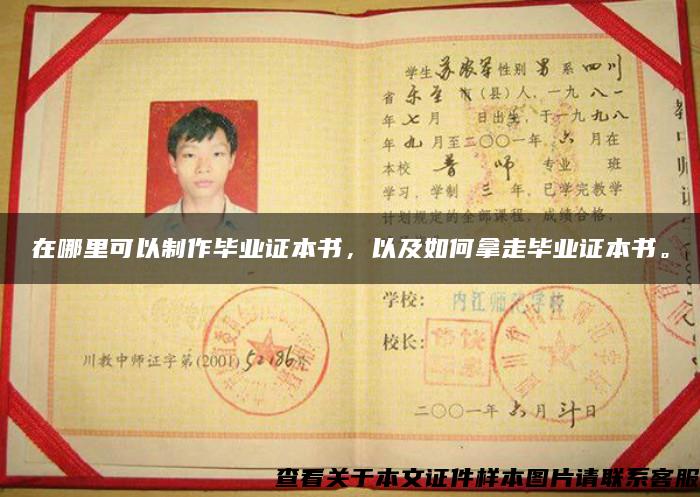 学生 苏家军 性别 男 系 四川
省 乐至 市（县）人，一九八一
年 七 月 日出生，于一九九八
年 九 月至二〇〇一年 六 月在
本校 普 师 专业 班
学习，学制 三 年，已学完教学
计划规定的全部课程，成绩合格，
在哪里可以制作毕业证本书，以及如何拿走毕业证本书。
学校： 内江师范学校
校长：
川教中师证字第(2001)52186号
二〇〇一年 六 月 廿 日
查看关于本文证件样本图片请联系客服